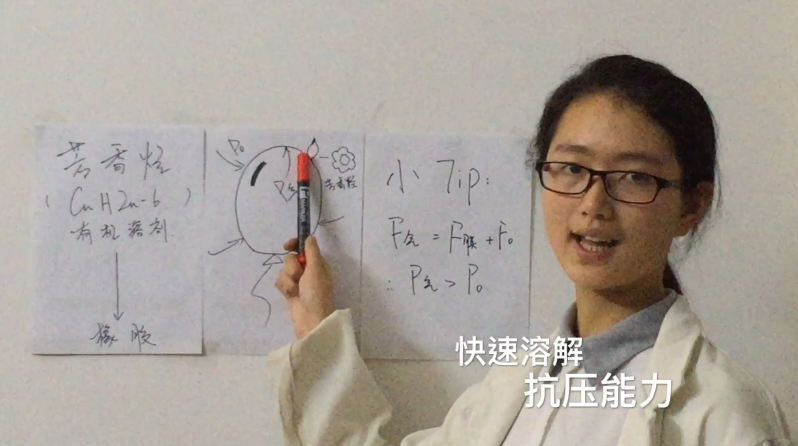 芳香烃
(CnH2n-6)
有机溶剂
橡胶
P₀
P气
芳香烃
小Tip:
F气 = F膜 + F₀
∴ P气 > P₀
快速溶解
抗压能力